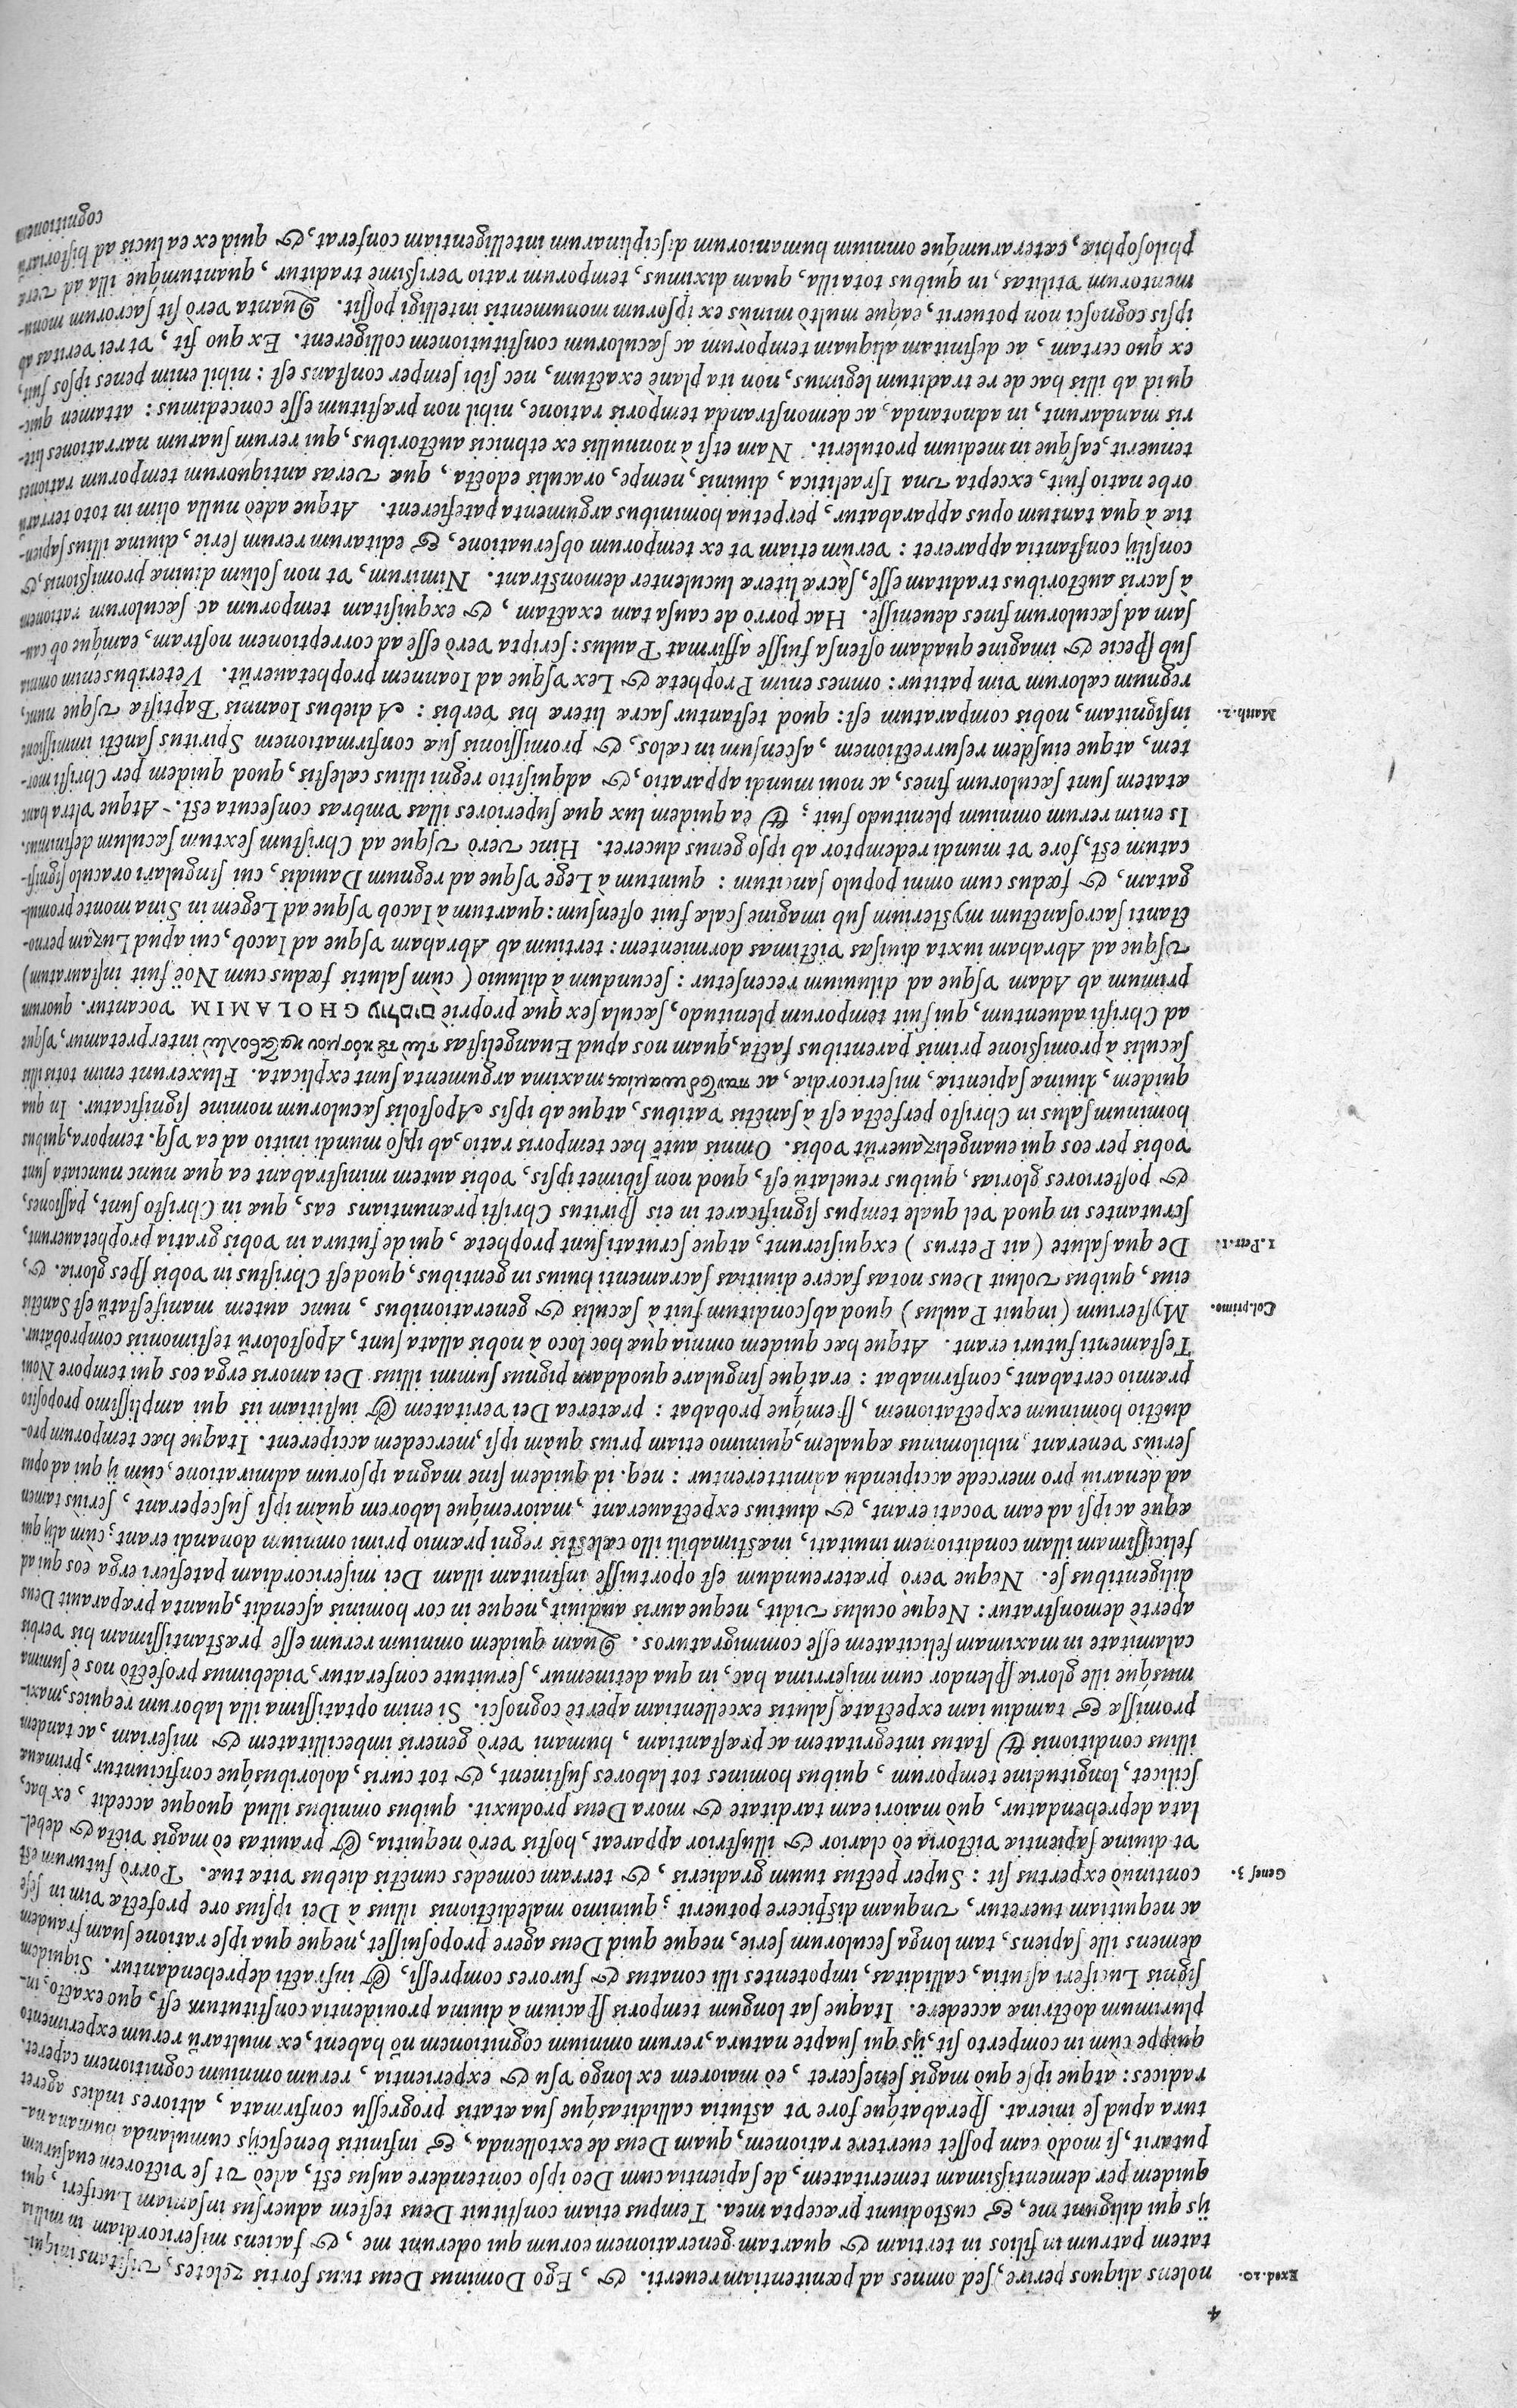 4
Exod. 20. nolens aliquos perire, sed omnes ad pœnitentiam reuerti. &, Ego Dominus Deus tuus fortis zelotes, visitans iniqui-
tatem patrum in filios in tertiam & quartam generationem eorum qui oderunt me, & faciens misericordiam in millia
ijs qui diligunt me, & custodiunt præcepta mea. Tempus etiam constituit Deus testem aduersus insaniam Luciferi, qui
quidem per dementissimam temeritatem, de sapientia cum Deo ipso contendere ausus est, adeò vt se victorem euasurum
putarit, si modò eam posset euertere rationem, quam Deus de extollenda, & infinitis beneficijs cumulanda humana na-
tura apud se inierat. sperabatque fore vt astutia calliditasque sua ætatis progressu confirmata, altiores indies ageret
radices: atque ipse quò magis senesceret, eò maiorem ex longo vsu & experientia, rerum omnium cognitionem caperet.
quippe cùm in comperto sit, ijs qui suapte natura, rerum omnium cognitionem nō habent, ex multarū rerum experimento
plurimum doctrinæ accedere. Itaque sat longum temporis spacium à diuina prouidentia constitutum est, quo exacto, in-
signis Luciferi astutia, calliditas, impotentes illi conatus & furores compressi, & infracti deprehendantur. Siquidem
demens ille sapiens, tam longa seculorum serie, neque quid Deus agere proposuisset, neque qua ipse ratione suam fraudem
ac nequitiam tueretur, vnquam dispicere potuerit; quinimo maledictionis illius à Dei ipsius ore profectæ vim in sese
Genes. 3. continuò expertus sit: Super pectus tuum gradieris, & terram comedes cunctis diebus vitæ tuæ. Porrò futurum est
vt diuinæ sapientiæ victoria eò clarior & illustrior appareat, hostis verò nequitia, & prauitas eò magis victa & debel-
lata deprehendatur, quò maiori eam tarditate & mora Deus produxit. quibus omnibus illud quoque accedit, ex hac,
scilicet, longitudine temporum, quibus homines tot labores sustinent, & tot curis, doloribusque conficiuntur, primæuæ
illius conditionis & status integritatem ac præstantiam, humani verò generis imbecillitatem & miseriam, ac tandem
promissæ & tamdiu iam expectatæ salutis excellentiam apertè cognosci. Si enim optatissima illa laborum requies, maxi-
musque ille gloriæ splendor cum miserrima hac, in qua detinemur, seruitute conferatur, videbimus profectò nos è summa
calamitate in maximam felicitatem esse commigraturos. Quam quidem omnium rerum esse præstantissimam his verbis
apertè demonstratur: Neque oculus vidit, neque auris audiuit, neque in cor hominis ascendit, quanta præparauit Deus
diligentibus se. Neque verò prætereundum est oportuisse infinitam illam Dei misericordiam patefieri erga eos qui ad
felicissimam illam conditionem inuitati, inæstimabili illo cælestis regni præmio primi omnium donandi erant; cùm alij qui
æquè ac ipsi ad eam vocati erant, & diutius expectauerant, maioremque laborem quàm ipsi susceperant, serius tamen
ad denariū pro mercede accipiendū admitterentur: neq. id quidem sine magna ipsorum admiratione, cùm ij qui ad opus
serius venerant, nihilominus æqualem, quinimo etiam prius quàm ipsi, mercedem acciperent. Itaque hæc temporum pro-
ductio hominum expectationem, spemque probabat: præterea Dei veritatem & iustitiam iis qui amplissimo proposito
præmio certabant, confirmabat: eratque singulare quoddam pignus summi illius Dei amoris erga eos qui tempore Noui
Testamenti futuri erant. Atque hæc quidem omnia quæ hoc loco à nobis allata sunt, Apostolorū testimoniis comprobātur.
Col. primo. Mysterium (inquit Paulus) quod absconditum fuit à sæculis & generationibus, nunc autem manifestatū est Sanctis
eius, quibus voluit Deus notas facere diuitias sacramenti huius in gentibus, quod est Christus in vobis spes gloriæ. &,
1. Petr. 1. De qua salute (ait Petrus) exquisierunt, atque scrutati sunt prophetæ, qui de futura in vobis gratia prophetauerunt,
scrutantes in quod vel quale tempus significaret in eis spiritus Christi prænuntians eas, quæ in Christo sunt, passiones,
& posteriores glorias, quibus reuelatū est, quod non sibimet ipsis, vobis autem ministrabant ea quæ nunc nunciata sunt
vobis per eos qui euangelizauerūt vobis. Omnis autē hæc temporis ratio, ab ipso mundi initio ad ea vsq. tempora, quibus
hominum salus in Christo perfecta est à sanctis vatibus, atque ab ipsis Apostolis sæculorum nomine significatur. In qua
quidem, diuinæ sapientiæ, misericordiæ, ac maxima argumenta sunt explicata. Fluxerunt enim totis illis
sæculis à promissione primis parentibus facta, quam nos apud Euangelistas interpretamur, vsque
ad Christi aduentum, qui fuit temporum plenitudo, sæcula sex quæ propriè עולמים GHOLAMIM vocantur. quorum
primum ab Adam vsque ad diluuium recensetur: secundum à diluuio (cùm salutis fœdus cum Noë fuit instauratum)
vsque ad Abraham iuxta diuisas victimas dormientem: tertium ab Abraham vsque ad Iacob, cui apud Luzam perno-
ctanti sacrosanctum mysterium sub imagine scalæ fuit ostensum: quartum à Iacob vsque ad Legem in Sina monte promul-
gatam, & fœdus cum omni populo sancitum: quintum à Lege vsque ad regnum Dauidis, cui singulari oraculo signifi-
catum est, fore vt mundi redemptor ab ipso genus duceret. Hinc verò vsque ad Christum sextum sæculum definimus.
Is enim rerum omnium plenitudo fuit; & ea quidem lux quæ superiores illas vmbras consecuta est. Atque vltra hanc
ætatem sunt sæculorum fines, ac noui mundi apparatio, & adquisitio regni illius cælestis, quod quidem per Christi mor-
tem, atque eiusdem resurrectionem, ascensum in cælos, & promissionis suæ confirmationem Spiritus sancti immissione
Matth. 2. insignitam, nobis comparatum est: quod testantur sacræ literæ his verbis: A diebus Ioannis Baptistæ vsque nunc,
regnum cælorum vim patitur: omnes enim Prophetæ & Lex vsque ad Ioannem prophetauerūt. Veteribus enim omnia
sub specie & imagine quadam ostensa fuisse affirmat Paulus: scripta verò esse ad correptionem nostram, eamque ob cau-
sam ad sæculorum fines deuenisse. Hac porrò de causa tam exactam, & exquisitam temporum ac sæculorum rationem
à sacris auctoribus traditam esse, sacræ literæ luculenter demonstrant. Nimirum, vt non solùm diuinæ promissionis, &
consilij constantia appareret: verum etiam vt ex temporum obseruatione, & editarum rerum serie, diuinæ illius sapien-
tiæ à qua tantum opus apparabatur, perpetua hominibus argumenta patefierent. Atque adeò nulla olim in toto terrarū
orbe natio fuit, excepta vna Israëlitica, diuinis, nempe, oraculis edocta, quæ veras antiquorum temporum rationes
tenuerit, easque in medium protulerit. Nam etsi à nonnullis ex ethnicis auctoribus, qui rerum suarum narrationes lite-
ris mandarunt, in adnotanda, ac demonstranda temporis ratione, nihil non præstitum esse concedimus: attamen quic-
quid ab illis hac de re traditum legimus, non ita planè exactum, nec sibi semper constans est: nihil enim penes ipsos fuit,
ex quo certam, ac definitam aliquam temporum ac sæculorum constitutionem colligerent. Ex quo fit, vt rei veritas ab
ipsis cognosci non potuerit, eaque multò minùs ex ipsorum monumentis intelligi possit. Quanta verò sit sacrorum monu-
mentorum vtilitas, in quibus tota illa, quam diximus, temporum ratio verissimè traditur, quantumque illa ad veræ
philosophiæ, cæterarumque omnium humaniorum disciplinarum intelligentiam conferat, & quid ex ea lucis ad historiarū
cognitionem